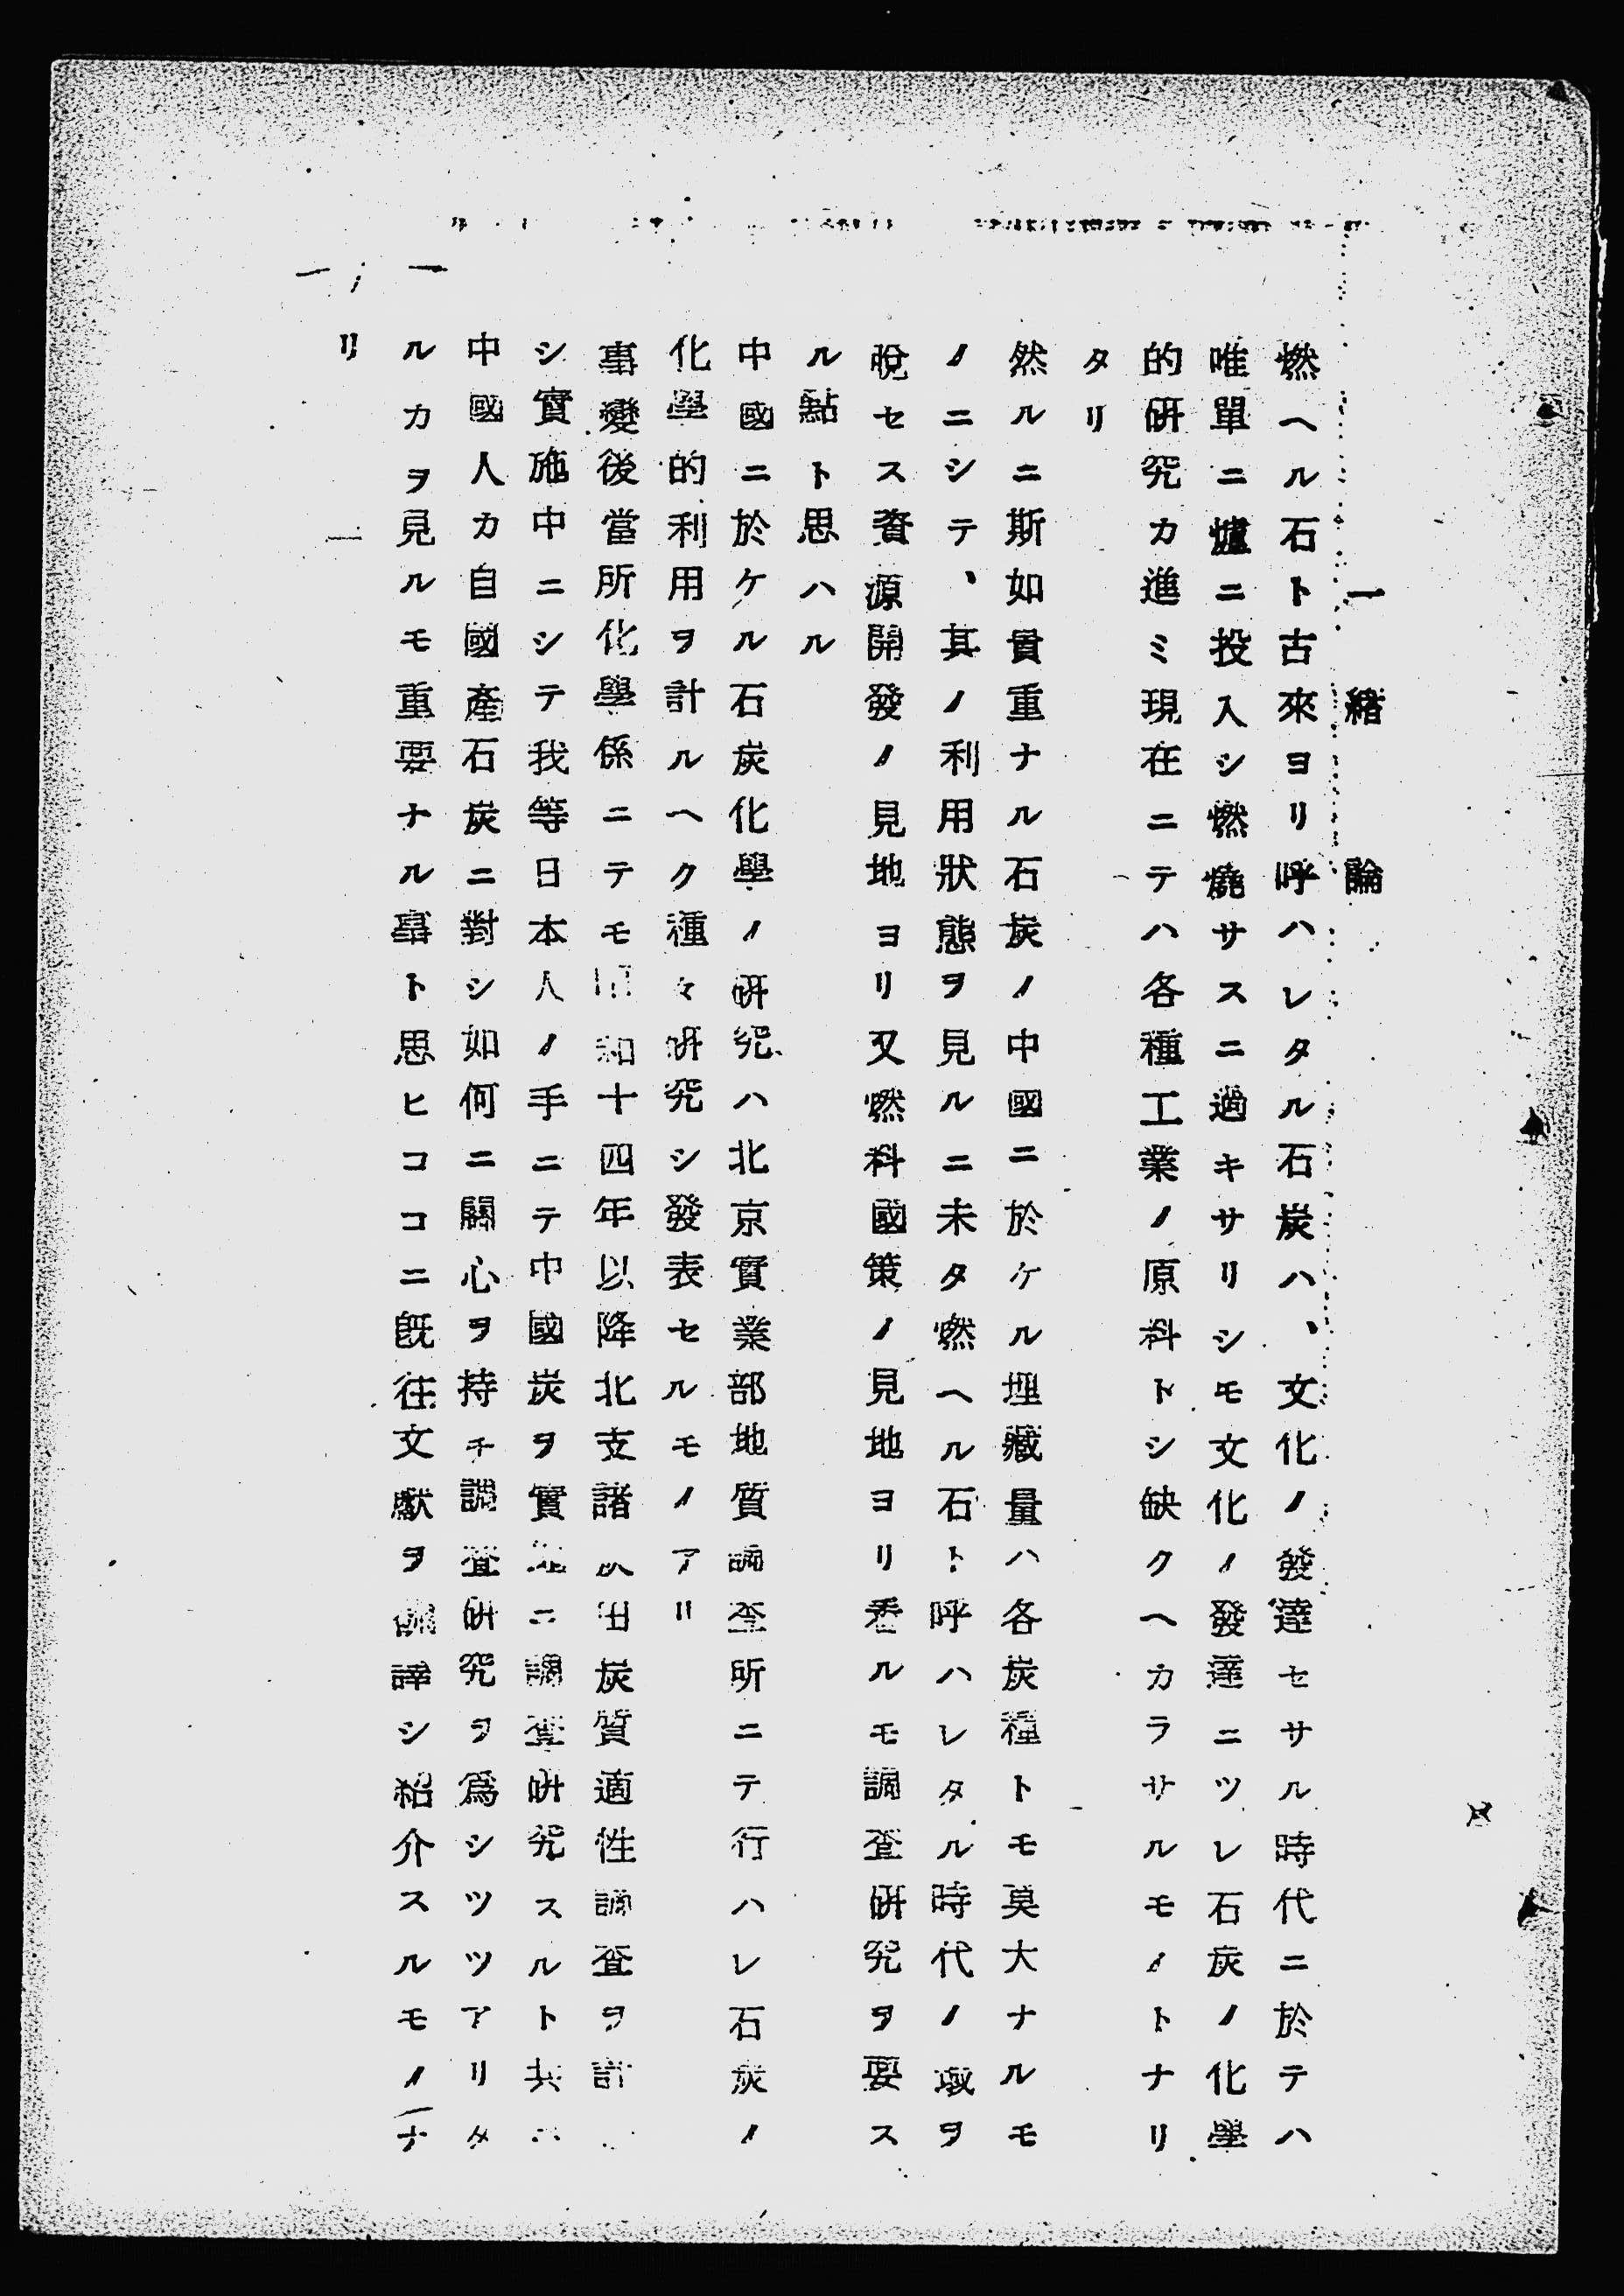 一　緒　論
燃ヘル石ト古來ヨリ呼ハレタル石炭ハ、文化ノ發達セサル時代ニ於テハ
唯單ニ爐ニ投入シ燃燒サスニ過キサリシモ文化ノ發達ニツレ石炭ノ化學
的研究カ進ミ現在ニテハ各種工業ノ原料トシ缺クヘカラサルモノトナリ
タリ
然ルニ斯如貴重ナル石炭ノ中國ニ於ケル埋藏量ハ各炭種トモ莫大ナルモ
ノニシテ、其ノ利用狀態ヲ見ルニ未タ燃ヘル石ト呼ハレタル時代ノ域ヲ
脫セス資源開發ノ見地ヨリ又燃料國策ノ見地ヨリ看ルモ調査研究ヲ要ス
ル點ト思ハル
中國ニ於ケル石炭化學ノ研究ハ北京實業部地質調査所ニテ行ハレ石炭ノ
化學的利用ヲ計ルヘク種々研究シ發表セルモノアリ
事變後當所化學係ニテモ昭和十四年以降北支諸炭田炭質適性調査ヲ計
シ實施中ニシテ我等日本人ノ手ニテ中國炭ヲ實地ニ調査研究スルト共ニ
中國人カ自國產石炭ニ對シ如何ニ關心ヲ持チ調査研究ヲ爲シツツアリタ
ルカヲ見ルモ重要ナル事ト思ヒココニ既往文獻ヲ飜譯シ紹介スルモノナ
リ
一